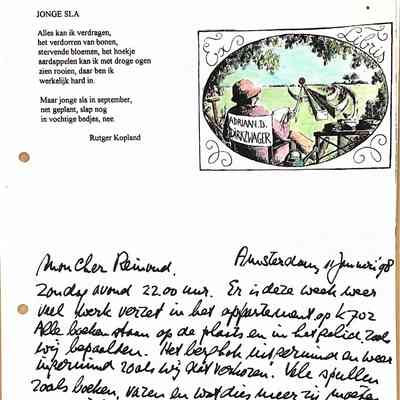 JONGE SLA
Alles kan ik verdragen,
het verdorren van bonen,
stervende bloemen, het hoekje
aardappelen kan ik met droge ogen
zien rooien, daar ben ik
werkelijk hard in.
Maar jonge sla in september,
net geplant, slap nog
in vochtige bedjes, nee.
Rutger Kopland
Ex Libris
ADRIAN.D.
DIRKZWAGER
Mon Cher Reimond, Amsterdam, 11 januari '98
Zondag avond 22.00 uur. Er is deze week weer
veel werk verzet in het appartement op K702
Alle boeken staan op de plaats en in het gelid zoals
wij bepaalden. Het berghok uitgeruimd en weer
ingeruimd zoals wij dat verkozen. Vele spullen
zoals boeken, vazen en wat dies meer zij moeten